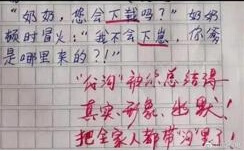 “奶奶，您会下载吗？”奶奶
顿时冒火：“我不会下崽，你爸
是哪里来的？！”
“代沟”被你总结得
真实、形象、幽默！
把全家人都带“沟”里了！